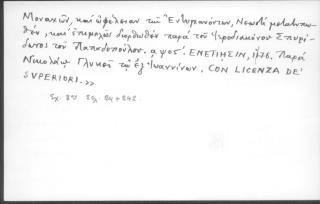 Μοναχῶν, καὶ ὠφέλειαν τῶν Ἐντυγχανόντων, Νεωστὶ μετατυπω-
θέν, καὶ ἐπιμελῶς διορθωθὲν παρὰ τοῦ Ἱεροδιακόνου Σπυρί-
δωνος τοῦ Παπαδοπούλου. ͵αψος´. ΕΝΕΤΙΗΣΙΝ, 1776. Παρὰ
Νικολάῳ Γλυκεῖ τῷ ἐξ Ἰωαννίνων. CON LICENZA DE'
SUPERIORI.>>
Σχ. 8ον Σελ. 24+242